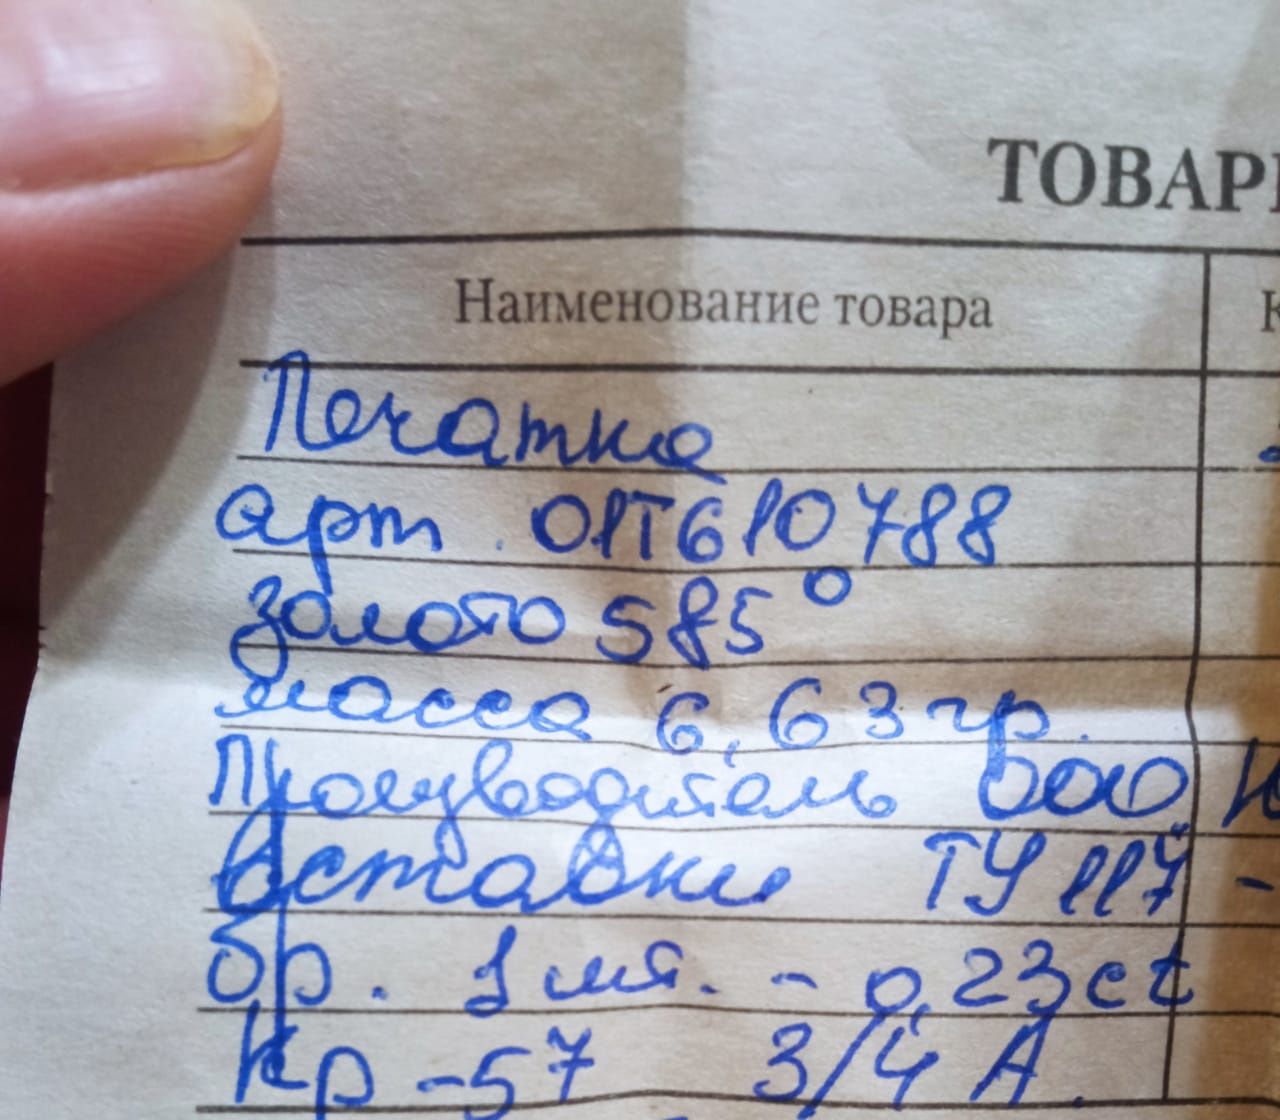 ТОВАР
Наименование товара
Печатка
арт. 01Т610788
золото 585°
масса 6,63 гр.
Производитель ООО Ю
Вставки ТУ 117 -
бр. 1 шт. - 0,23 ct
Кр-57 3/4 А.